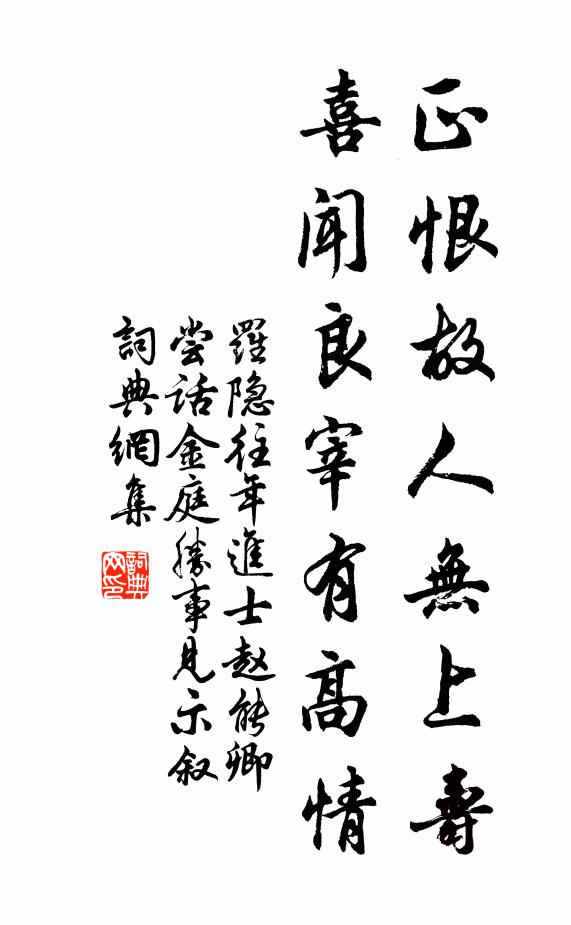 正恨故人無上壽
喜聞良宰有高情
羅隐往年進士赵能卿
尝话金庭勝事見示叙
詞典網集
詞典网印